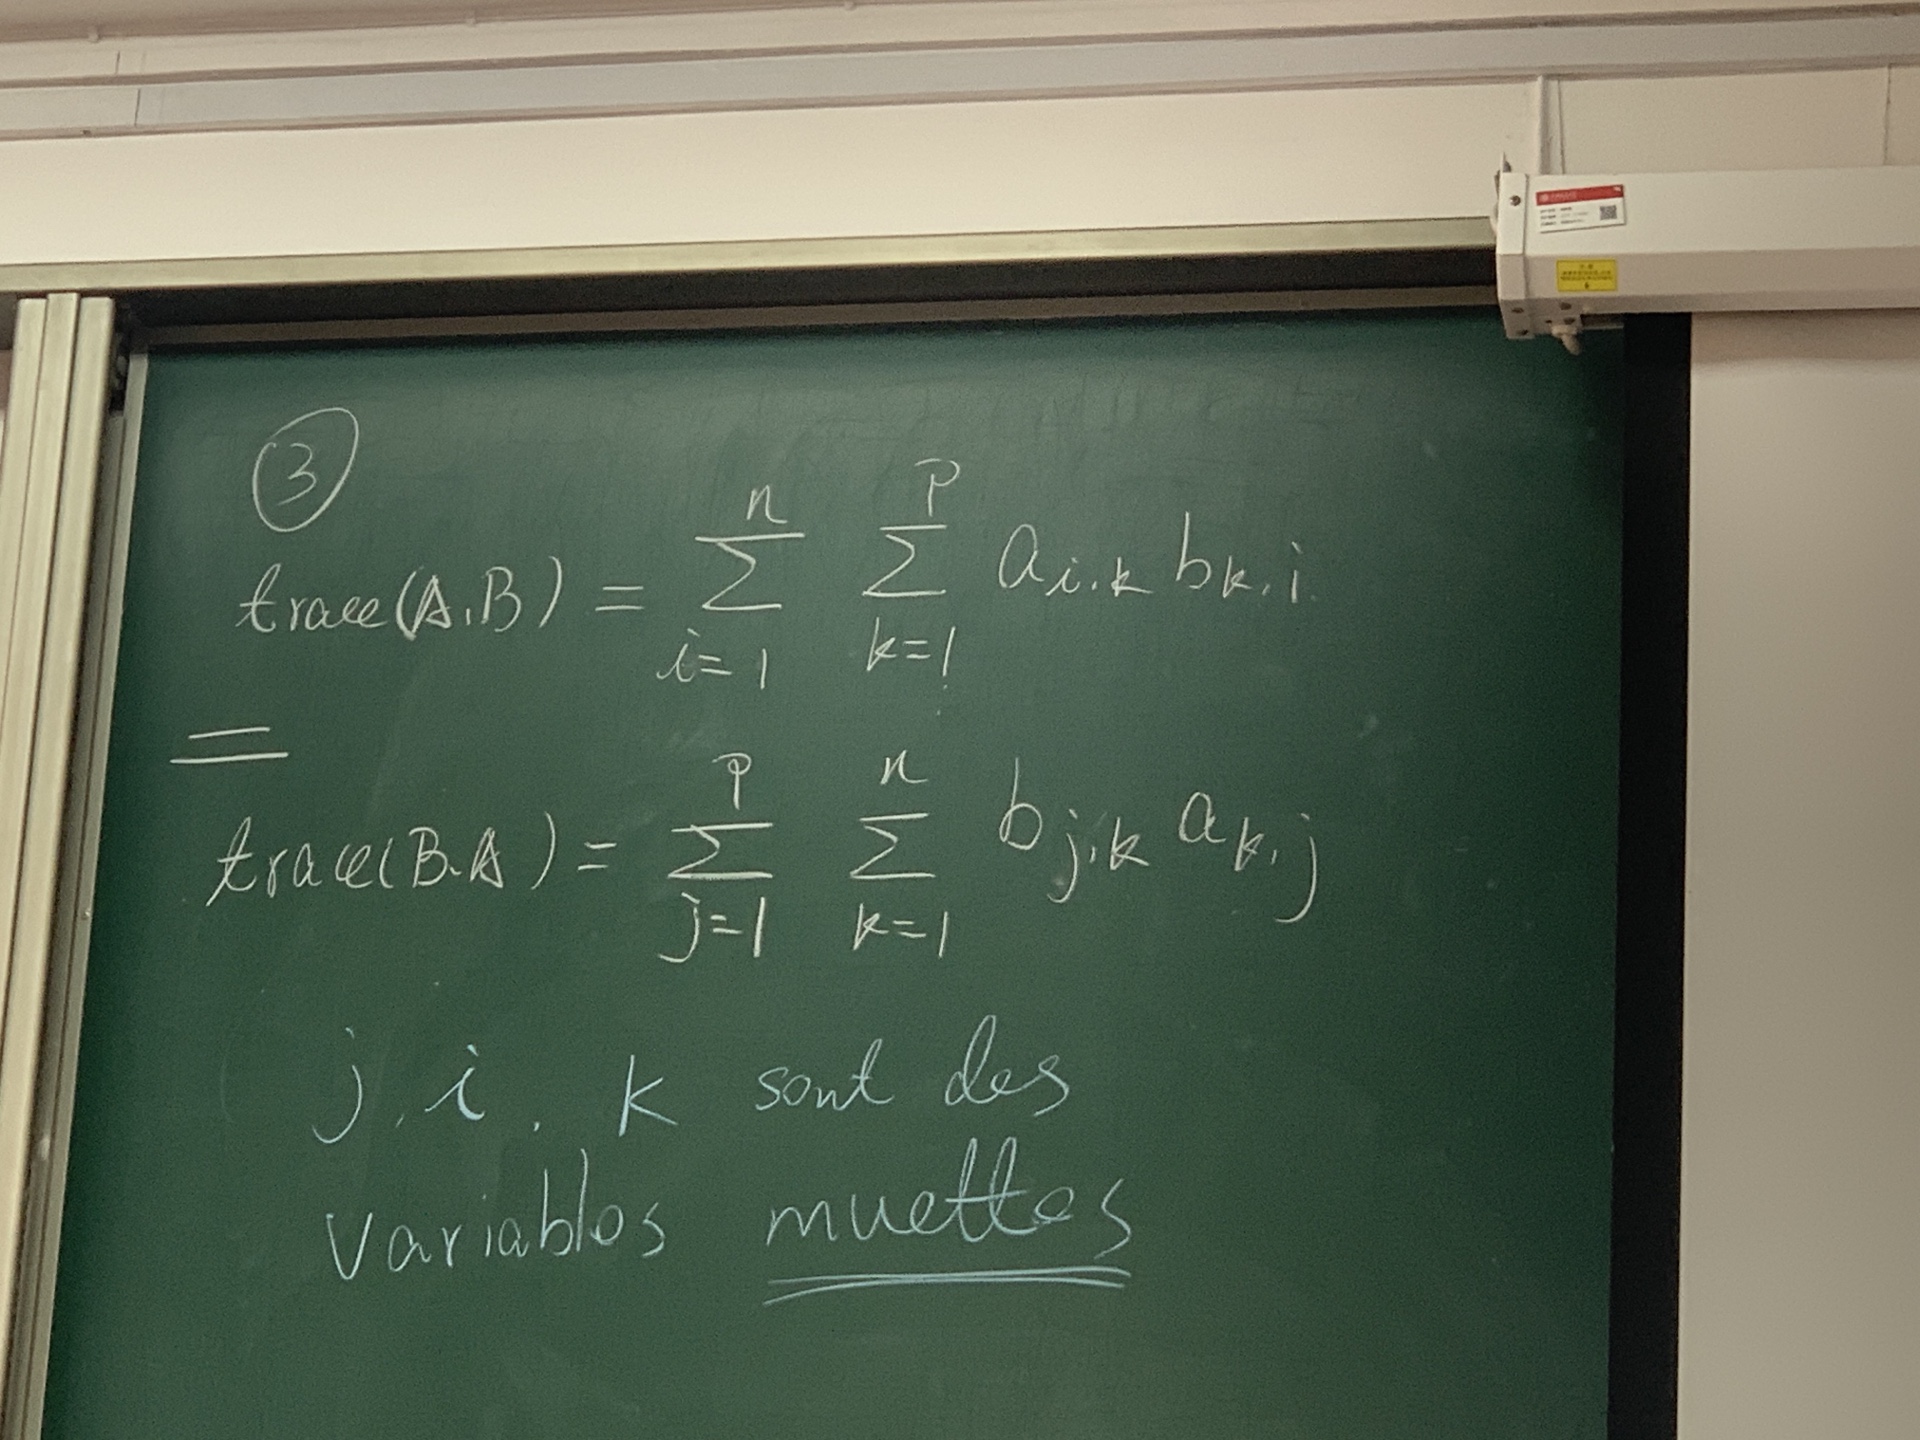 ③
trace(A.B) = \sum_{i=1}^{n} \sum_{k=1}^{p} a_{i.k} b_{k.i}
=
trace(B.A) = \sum_{j=1}^{p} \sum_{k=1}^{n} b_{j.k} a_{k.j}
j, i, k sont des
variables muettes